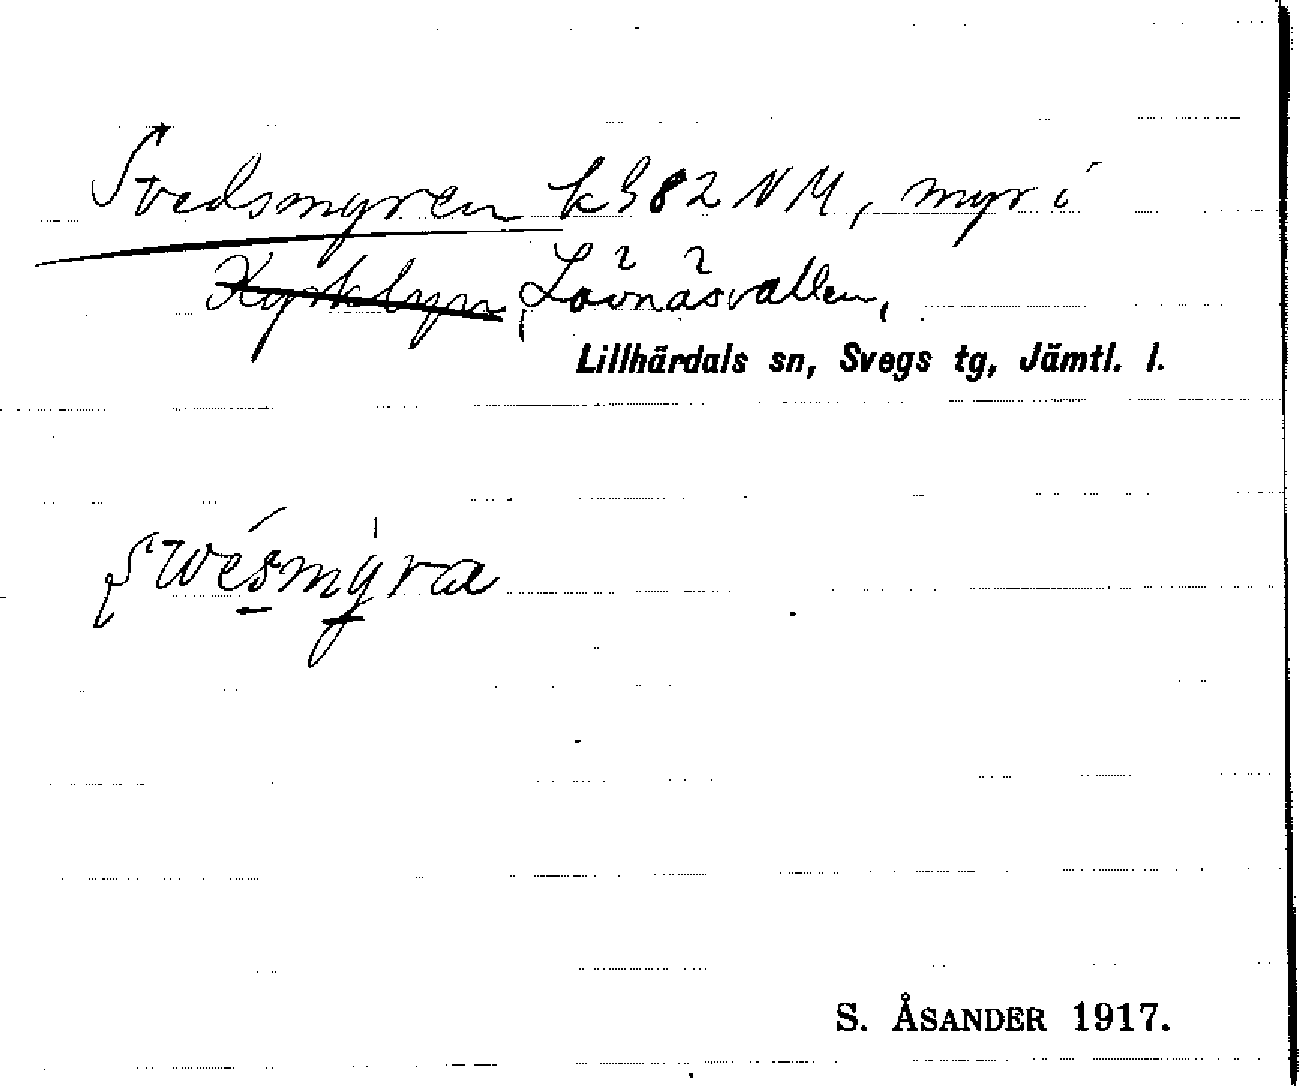 Svedsmyren k982 NM, myr i
Kyrkbyn, Lövnäsvallen,
Lillhärdals sn, Svegs tg, Jämtl. l.
swésmýra
S. ÅSANDER 1917.